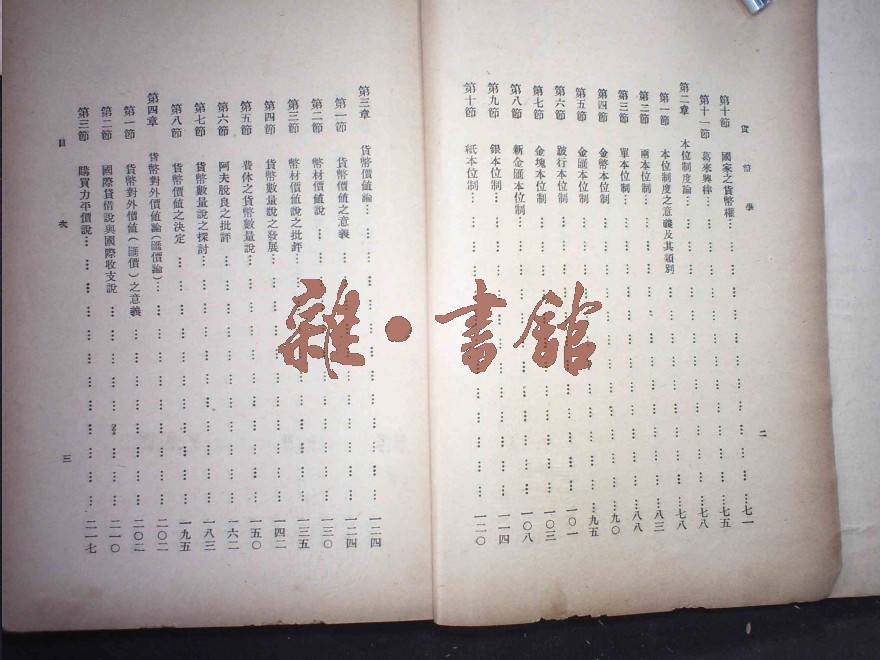 貨幣學
二
第十節 國家之貨幣權…………七一
第十一節 葛來興律…………七五
第二章 本位制度論…………七八
第一節 本位制度之意義及其類別…………七八
第二節 兩本位制…………八三
第三節 單本位制…………八八
第四節 金幣本位制…………九〇
第五節 金匯本位制…………九五
第六節 跛行本位制…………一〇一
第七節 金塊本位制…………一〇三
第八節 新金匯本位制…………一〇八
第九節 銀本位制…………一一四
第十節 紙本位制…………一二〇
第三章 貨幣價値論…………一二四
第一節 貨幣價値之意義…………一二四
第二節 幣材價値說…………一三〇
第三節 幣材價値說之批評…………一三五
第四節 貨幣數量說之發展…………一四二
第五節 費休之貨幣數量說…………一五〇
第六節 阿夫脫良之批評…………一六二
第七節 貨幣數量說之探討…………一八三
第八節 貨幣價値之決定…………一九五
第四章 貨幣對外價値論(匯價論)…………二〇二
第一節 貨幣對外價値(匯價)之意義…………二〇二
第二節 國際貸借說與國際收支說…………二一〇
第三節 購買力平價說…………二一七
目次
三
雜·書館